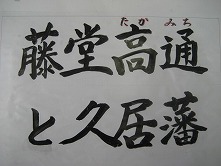 たかみち
藤堂高通
と久居藩